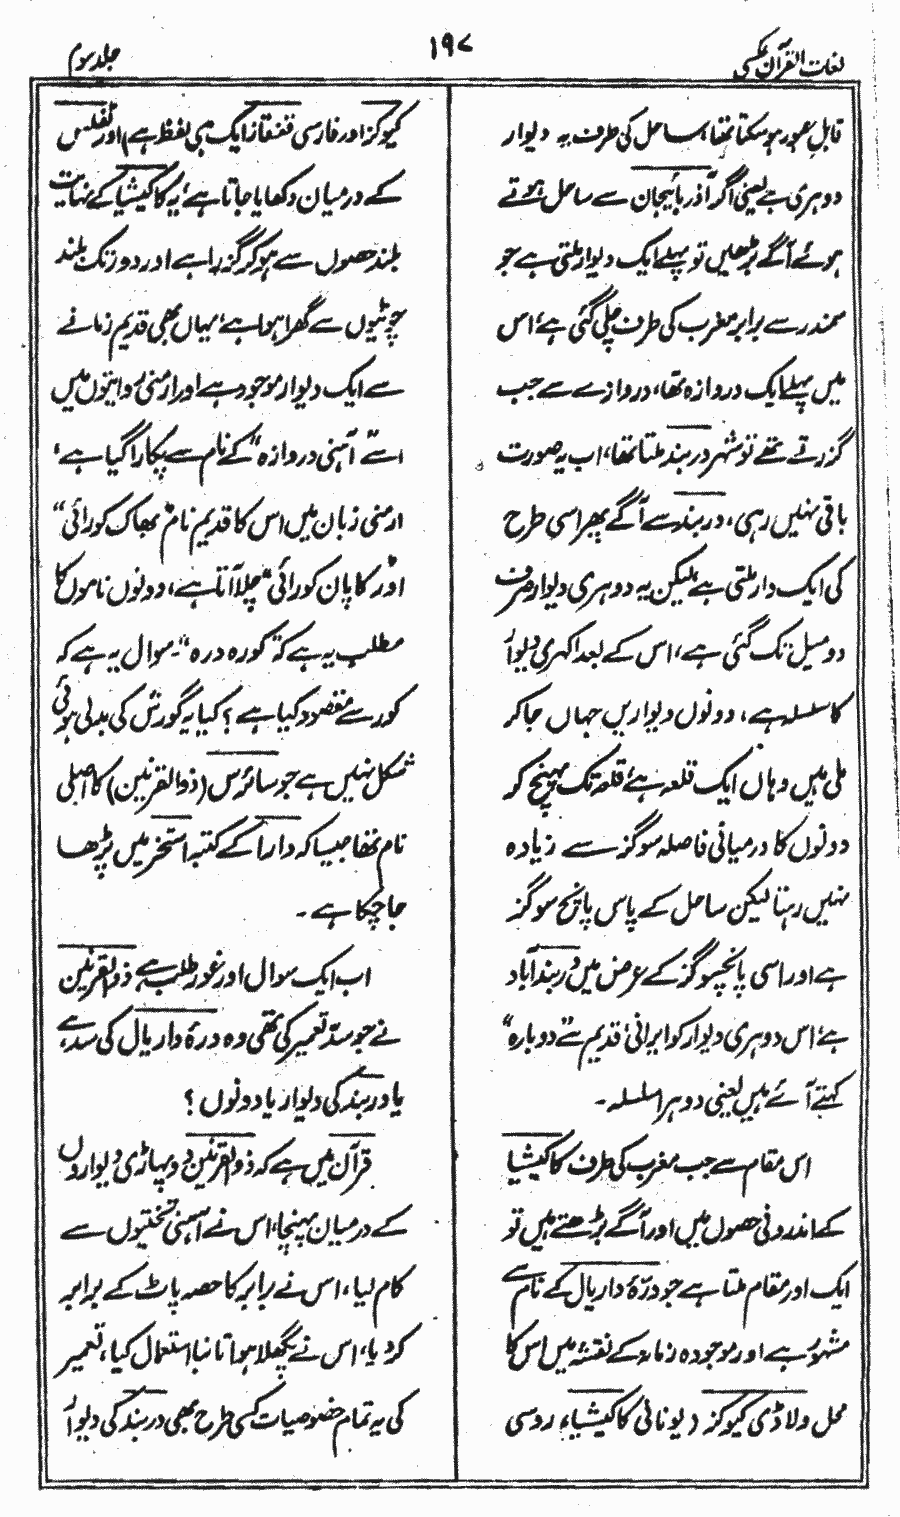 لغات القرآن عکسی
۱۹۷
جلد سوم
قابلِ عبور ہوسکتا تھا، ساحل کی طرف یہ دیوار
دوہری ہے یعنی اگر آذربائیجان سے ساحل ہوتے
ہوئے آگے بڑھیں تو پہلے ایک دیوار ملتی ہے جو
سمندر سے برابر مغرب کی طرف چلی گئی ہے، اس
میں پہلے ایک دروازہ تھا، دروازے سے جب
گزرتے تھے تو شہر دربند ملتا تھا، اب یہ صورت
باقی نہیں رہی، دربند سے آگے پھر اسی طرح
کی ایک دار ملتی ہے، لیکن یہ دوہری دیوار صرف
دو میل تک گئی ہے، اس کے بعد اکہری دیوار
کا سلسلہ ہے، دونوں دیواریں جہاں جاکر
ملی ہیں وہاں ایک قلعہ ہے، قلعہ تک پہنچ کر
دونوں کا درمیانی فاصلہ سو گز سے زیادہ
نہیں رہتا لیکن ساحل کے پاس پانچ سو گز
ہے اور اسی پانچسو گز کے عرض میں دربند آباد
ہے، اس دوہری دیوار کو ایرانی، قدیم سے "دوبارہ"
کہتے آئے ہیں یعنی دوہرا سلسلہ۔
اس مقام سے جب مغرب کی طرف کاکیشیا
کے اندرونی حصوں میں اور آگے بڑھتے ہیں تو
ایک اور مقام ملتا ہے جو درّۂ داریال کے نام سے
مشہور ہے اور موجودہ زمانہ کے نقشہ میں اس کا
محل ولاڈی کیوکز (یونانی کاکیشیا، روسی
کیوکز اور فارسی قفقاز ایک ہی لفظ ہے) اور ٹفلس
کے درمیان دکھایا جاتا ہے، یہ کاکیشیا کے نہایت
بلند حصوں سے ہو کر گزرا ہے اور دور تک بلند
چوٹیوں سے گھرا ہوا ہے، یہاں بھی قدیم زمانے
سے ایک دیوار موجود ہے اور ارمنی روایتوں میں
اسے "آہنی دروازہ" کے نام سے پکارا گیا ہے،
ارمنی زبان میں اس کا قدیم نام "پھاک کورائی"
اور "کاپان کورائی" چلا آتا ہے، دونوں ناموں کا
مطلب یہ ہے کہ "کورہ درہ"۔ سوال یہ ہے کہ
کور سے مقصود کیا ہے؟ کیا یہ گورش کی بدلی ہوئی
شکل نہیں ہے جو سائرس (ذوالقرنین) کا اصلی
نام تھا جیسا کہ دارا کے کتبہ استخر میں پڑھا
جاچکا ہے۔
اب ایک سوال اور غور طلب ہے ذوالقرنین
نے جو سدّ تعمیر کی تھی وہ درۂ داریال کی سد ہے،
یا دربند کی دیوار یا دونوں؟
قرآن میں ہے کہ ذوالقرنین دو پہاڑی دیواروں
کے درمیان پہنچا، اس نے آہنی تختیوں سے
کام لیا، اس نے برابر کا حصہ پاٹ کے برابر
کردیا، اس نے پگھلا ہوا تانبا استعمال کیا، تعمیر
کی یہ تمام خصوصیات کسی طرح بھی دربند کی دیوار